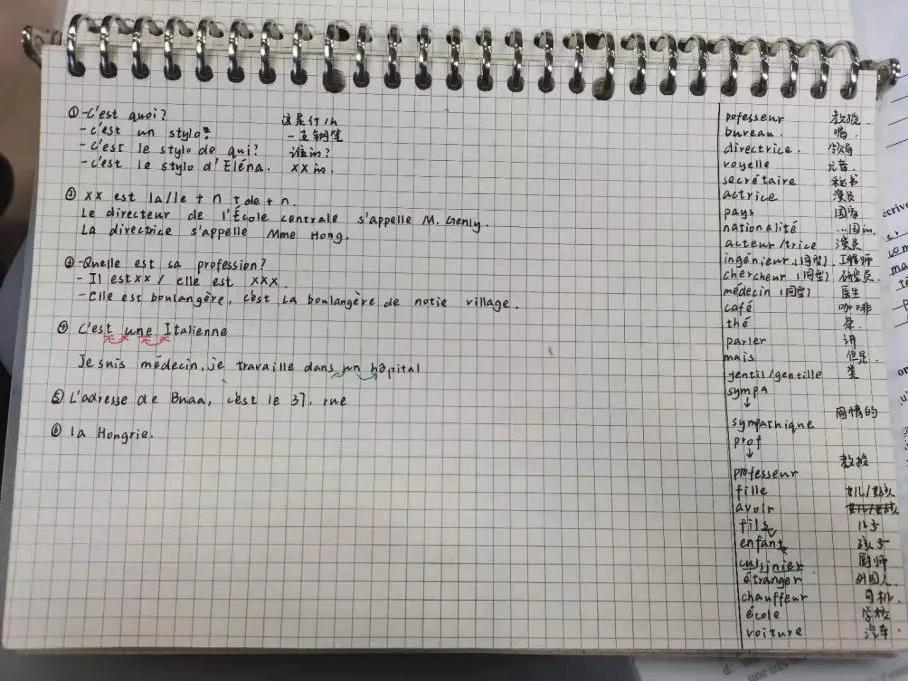 ① -C'est quoi? 这是什么
- c'est un stylo. 一支钢笔
- c'est le stylo de qui? 谁的?
- c'est le stylo d'Eléna. XX的.
② XX est la/le + n + de + n.
Le directeur de l'École centrale s'appelle M. Genly.
La directrice s'appelle Mme Hong.
③ -Quelle est sa profession?
- Il est XX / elle est XXX.
- Elle est boulangère, c'est La boulangère de notie village.
④ C'est une Italienne
Je suis médecin, je travaille dans un hôpital
⑤ L'adresse de c'est le 37, rue
⑥ la Hongrie.
pofesseur 教授.
bureau.
directrice. 领导
voyelle 元音.
secrétaire 秘书
actrice 演员
pays 国家
nationalité ...国的.
acteur/trice 演员
ingénieur (同型). 工程师
chercheur (同型) 研究员.
médecin (同型) 医生
café 咖啡
thé 茶.
parler 讲
mais 但是.
gentil/gentille
sympa
↓
sympathique 同情的
prof
↓
professeur 教授
fille 女儿/女孩
avoir
fils 儿子
enfant 孩子
cuisinier 厨师
étranger 外国人.
chauffeur 司机.
école 学校
voiture 汽车.